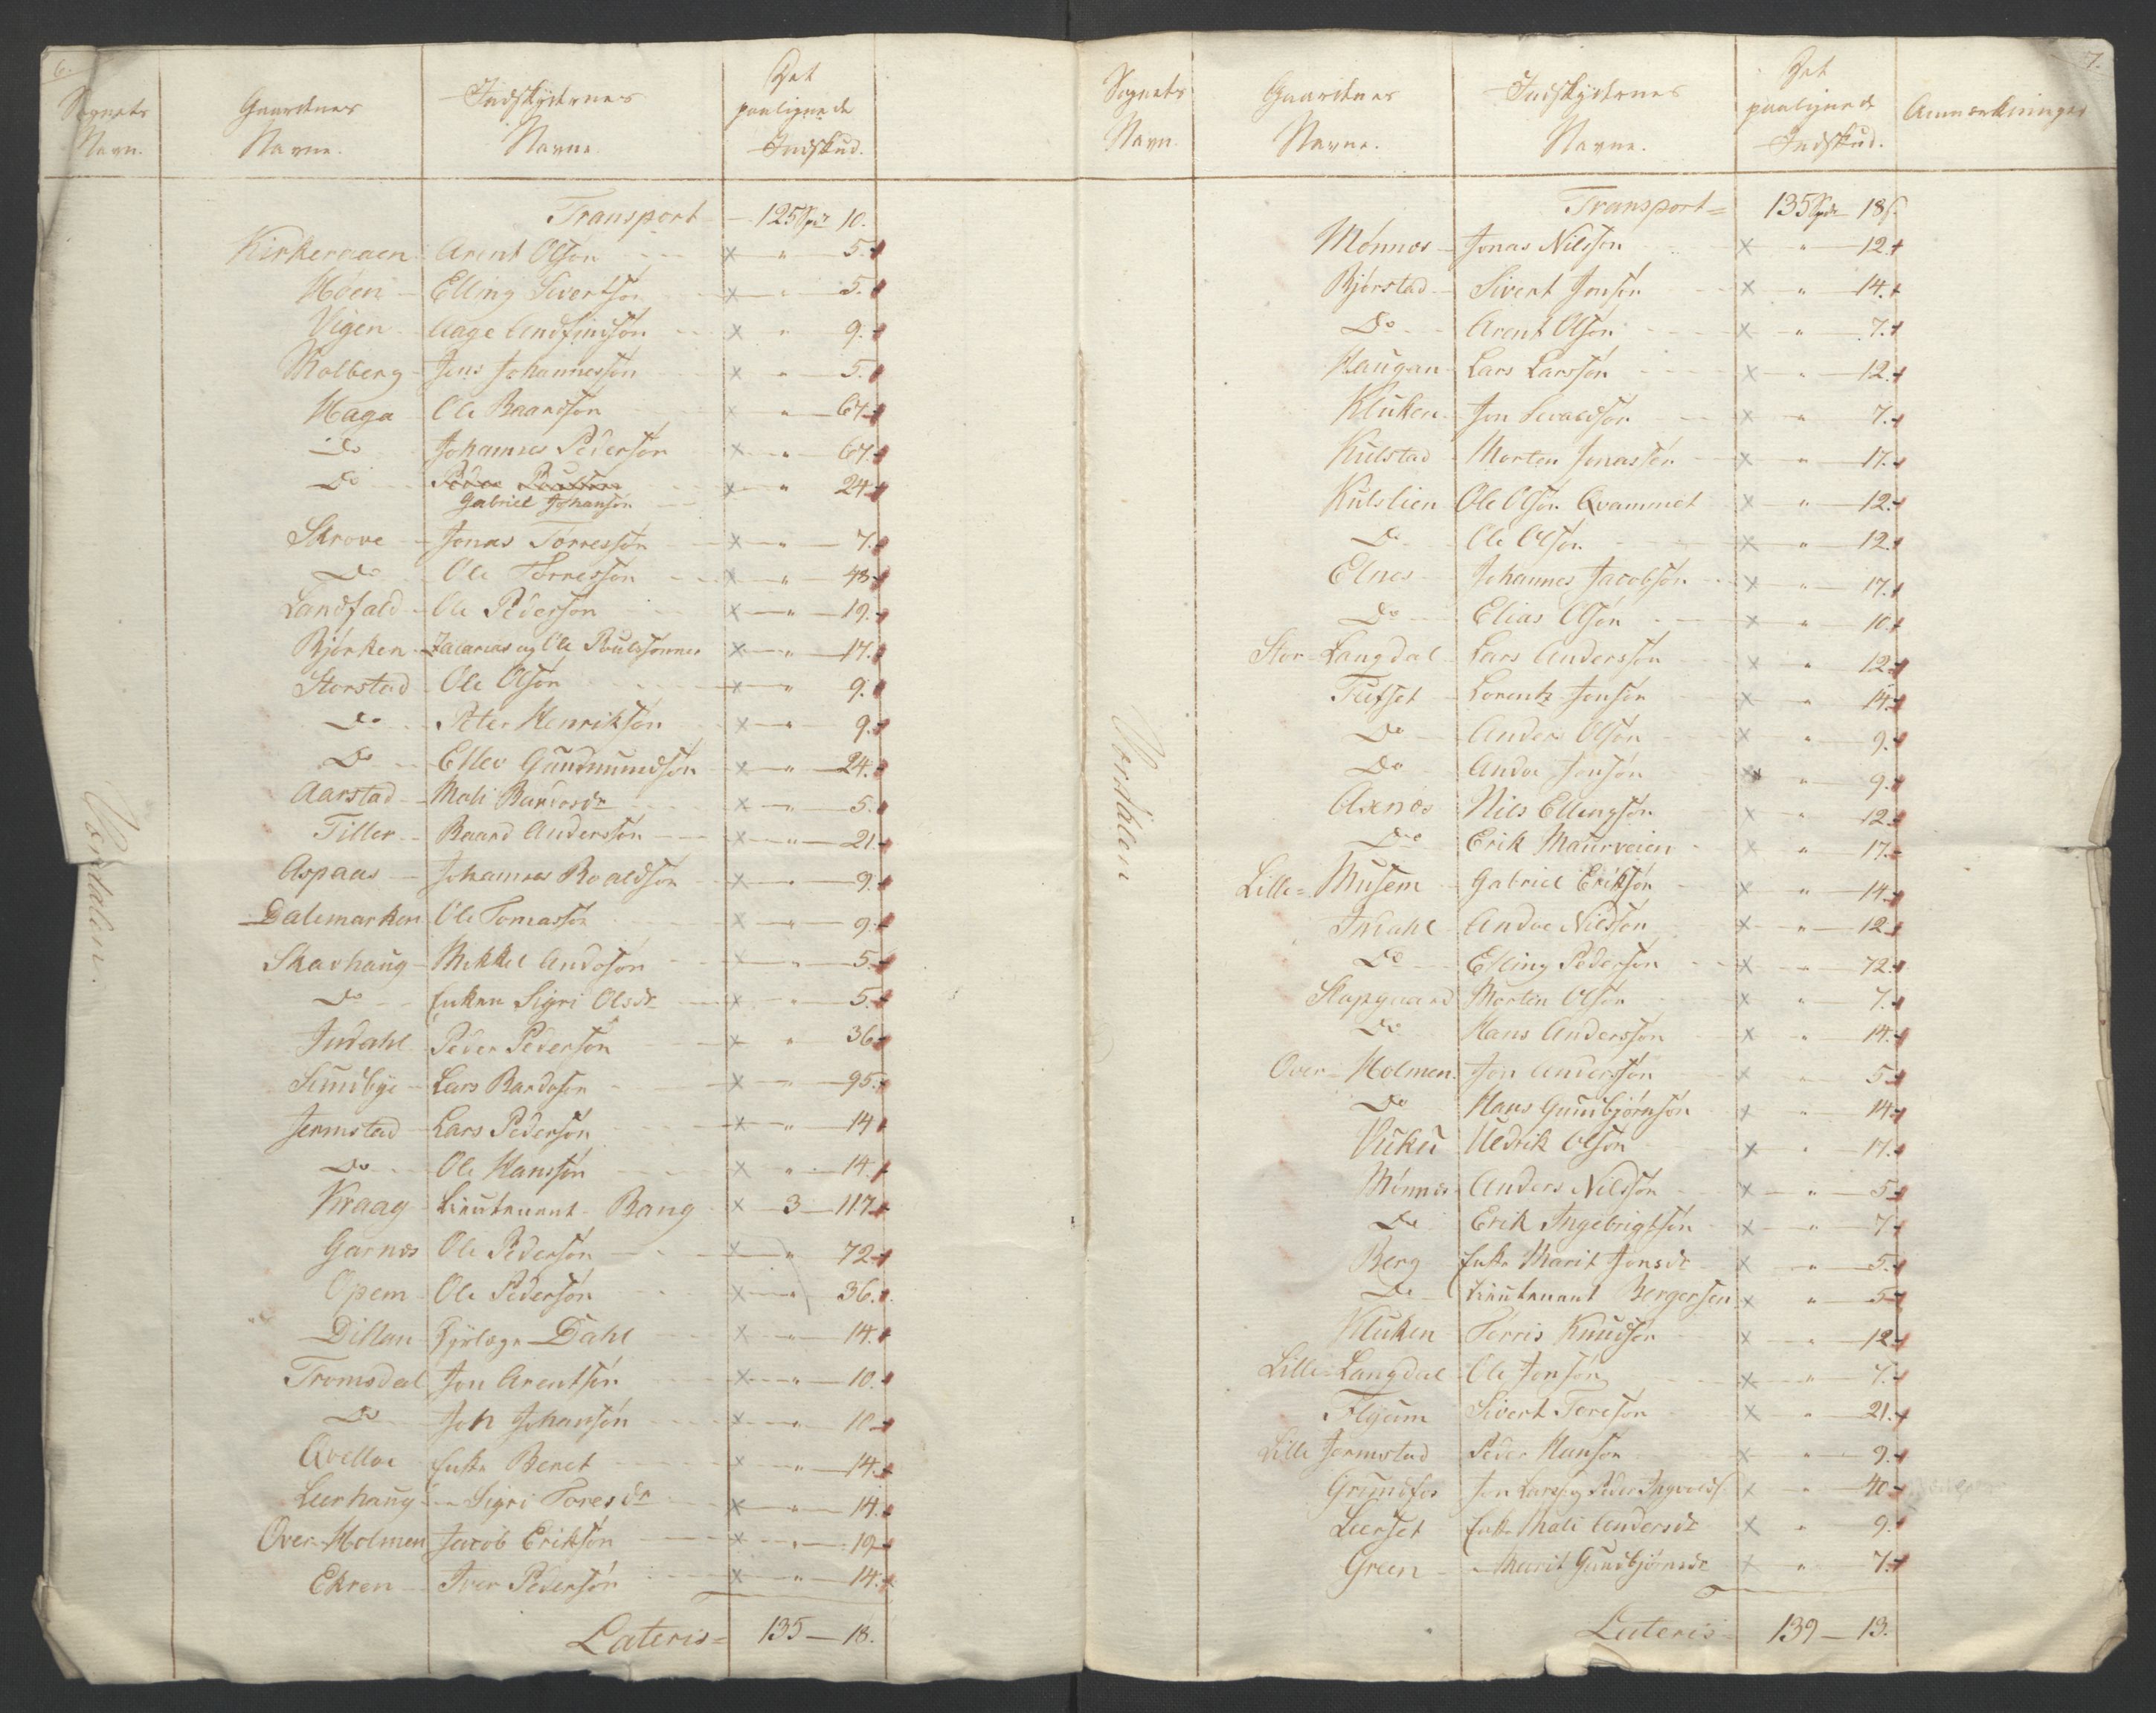 6.
Sognets Navn. Gaardenes Navne. Indskydernes Navne. Det paalignede Indskud.
Værdalen.
Transport 125 Spd 10.
Kirkeraaen Arent Olsøn x " 5.
Høen Elling Sivertsøn x " 5.
Vigen Aage Andfindsøn x " 9.
Molberg Jens Johannessøn x " 5.
Haga Ole Baardsøn x " 67.
Do Johannes Pedersøn x " 67.
Do Gabriel Johansøn x " 24
Skrove Jonas Tørressøn x " 7.
Do Ole Tørressøn x " 48
Landfald Ole Pedersøn x " 19.
Bjørken Zacarias og Ole Poulssønner x " 17.
Storstad Ole Olsøn x " 9.
Do Peter Henriksøn x " 9.
Do Ellev Gundmundsøn x " 24.
Aarstad Mali Bardosdr x " 5.
Tiller Baard Andersøn x " 21.
Aspaas Johannes Roaldsøn x " 9.
Dalemarken Ole Tomassøn x " 9.
Skavhaug Mikkel Andosøn x " 5.
Do Enken Sigri Olsdr x " 5.
Indahl Peder Pedersøn x " 36
Sundbye Lars Bardosøn x " 95.
Jermstad Lars Pedersøn x " 14
Do Ole Hanssøn x " 14.
Kraag Lieutenant Bang x 3 117.
Garnæs Ole Pedersøn x " 72
Opem Ole Pedersøn x " 36.
Dillan Dahl x " 14.
Tromsdal Jon Arentsøn x " 10.
Do Joh Johansøn x " 10
Qvelloe Enke Beret x " 14.
Leerhaug Sigri Toresdr x " 14.
Over-Holmen Jacob Eriksøn x " 19
Ekren Iver Pedersøn x " 14.
Lateris= 135 — 18.
7.
Sognets Navn. Gaardenes Navne. Indskydernes Navne. Det paalignede Indskud. Anmærkninger
Værdalen
Transport= 135 Spd 18 s.
Mønnæs Jonas Nilsson x " 12
Bjørstad Sivert Jonsøn x " 14.
Do Arent Olsøn x " 7.
Haugan Lars Larssøn x " 12.
Kluken Jon Sivaldsøn x " 7.
Kulstad Morten Jonassøn x " 17.
Kulslien Ole Olsøn Qvammet x " 12.
Do Ole Olsøn x " 12.
Elnes Johannes Jacobsøn x " 17.
Do Elias Olsøn x " 10.
Stor-Langdal Lars Anderssøn x " 12
Tufset Lorentz Jonsøn x " 14
Do Anders Olsøn x " 9.
Do Andor Jonsøn x " 9.
Axnes Nils Ellingsøn x " 12
Do Erik Maurveien x " 17.
Lille-Musem Gabriel Eriksøn x " 14.
Indahl Andor Nilssøn x " 12
Do Elling Pedersøn x " 72.
Slapgaard Morten Olsøn x " 7.
Do Hans Anderssøn x " 14.
Over-Holmen. Jon Anderssøn x " 5
Do Hans Gunbjørnsøn x " 14
Vuku Uldrik Olsøn x " 17.
Mønnes Anders Nilssøn x " 5
Do Erik Ingebrigtsøn x " 7
Berg Enke Marit Jonsdr x " 5.
Do Lieutenant Bergersen x " 5
Kluken Tørris Knudsøn x " 12
Lille Langdal Ole Jonsøn x " 7.
Flyum Sivert Toresøn x " 21.
Lille Jermstad Peder Hansøn x " 9.
Grundfos Jon Lars. og Peder Ingvolds. x " 40
Leerset Enke Mali Andersdr x " 9.
Green Marit Gundbjørnsdr x " 7.
Lateris 139 — 13.